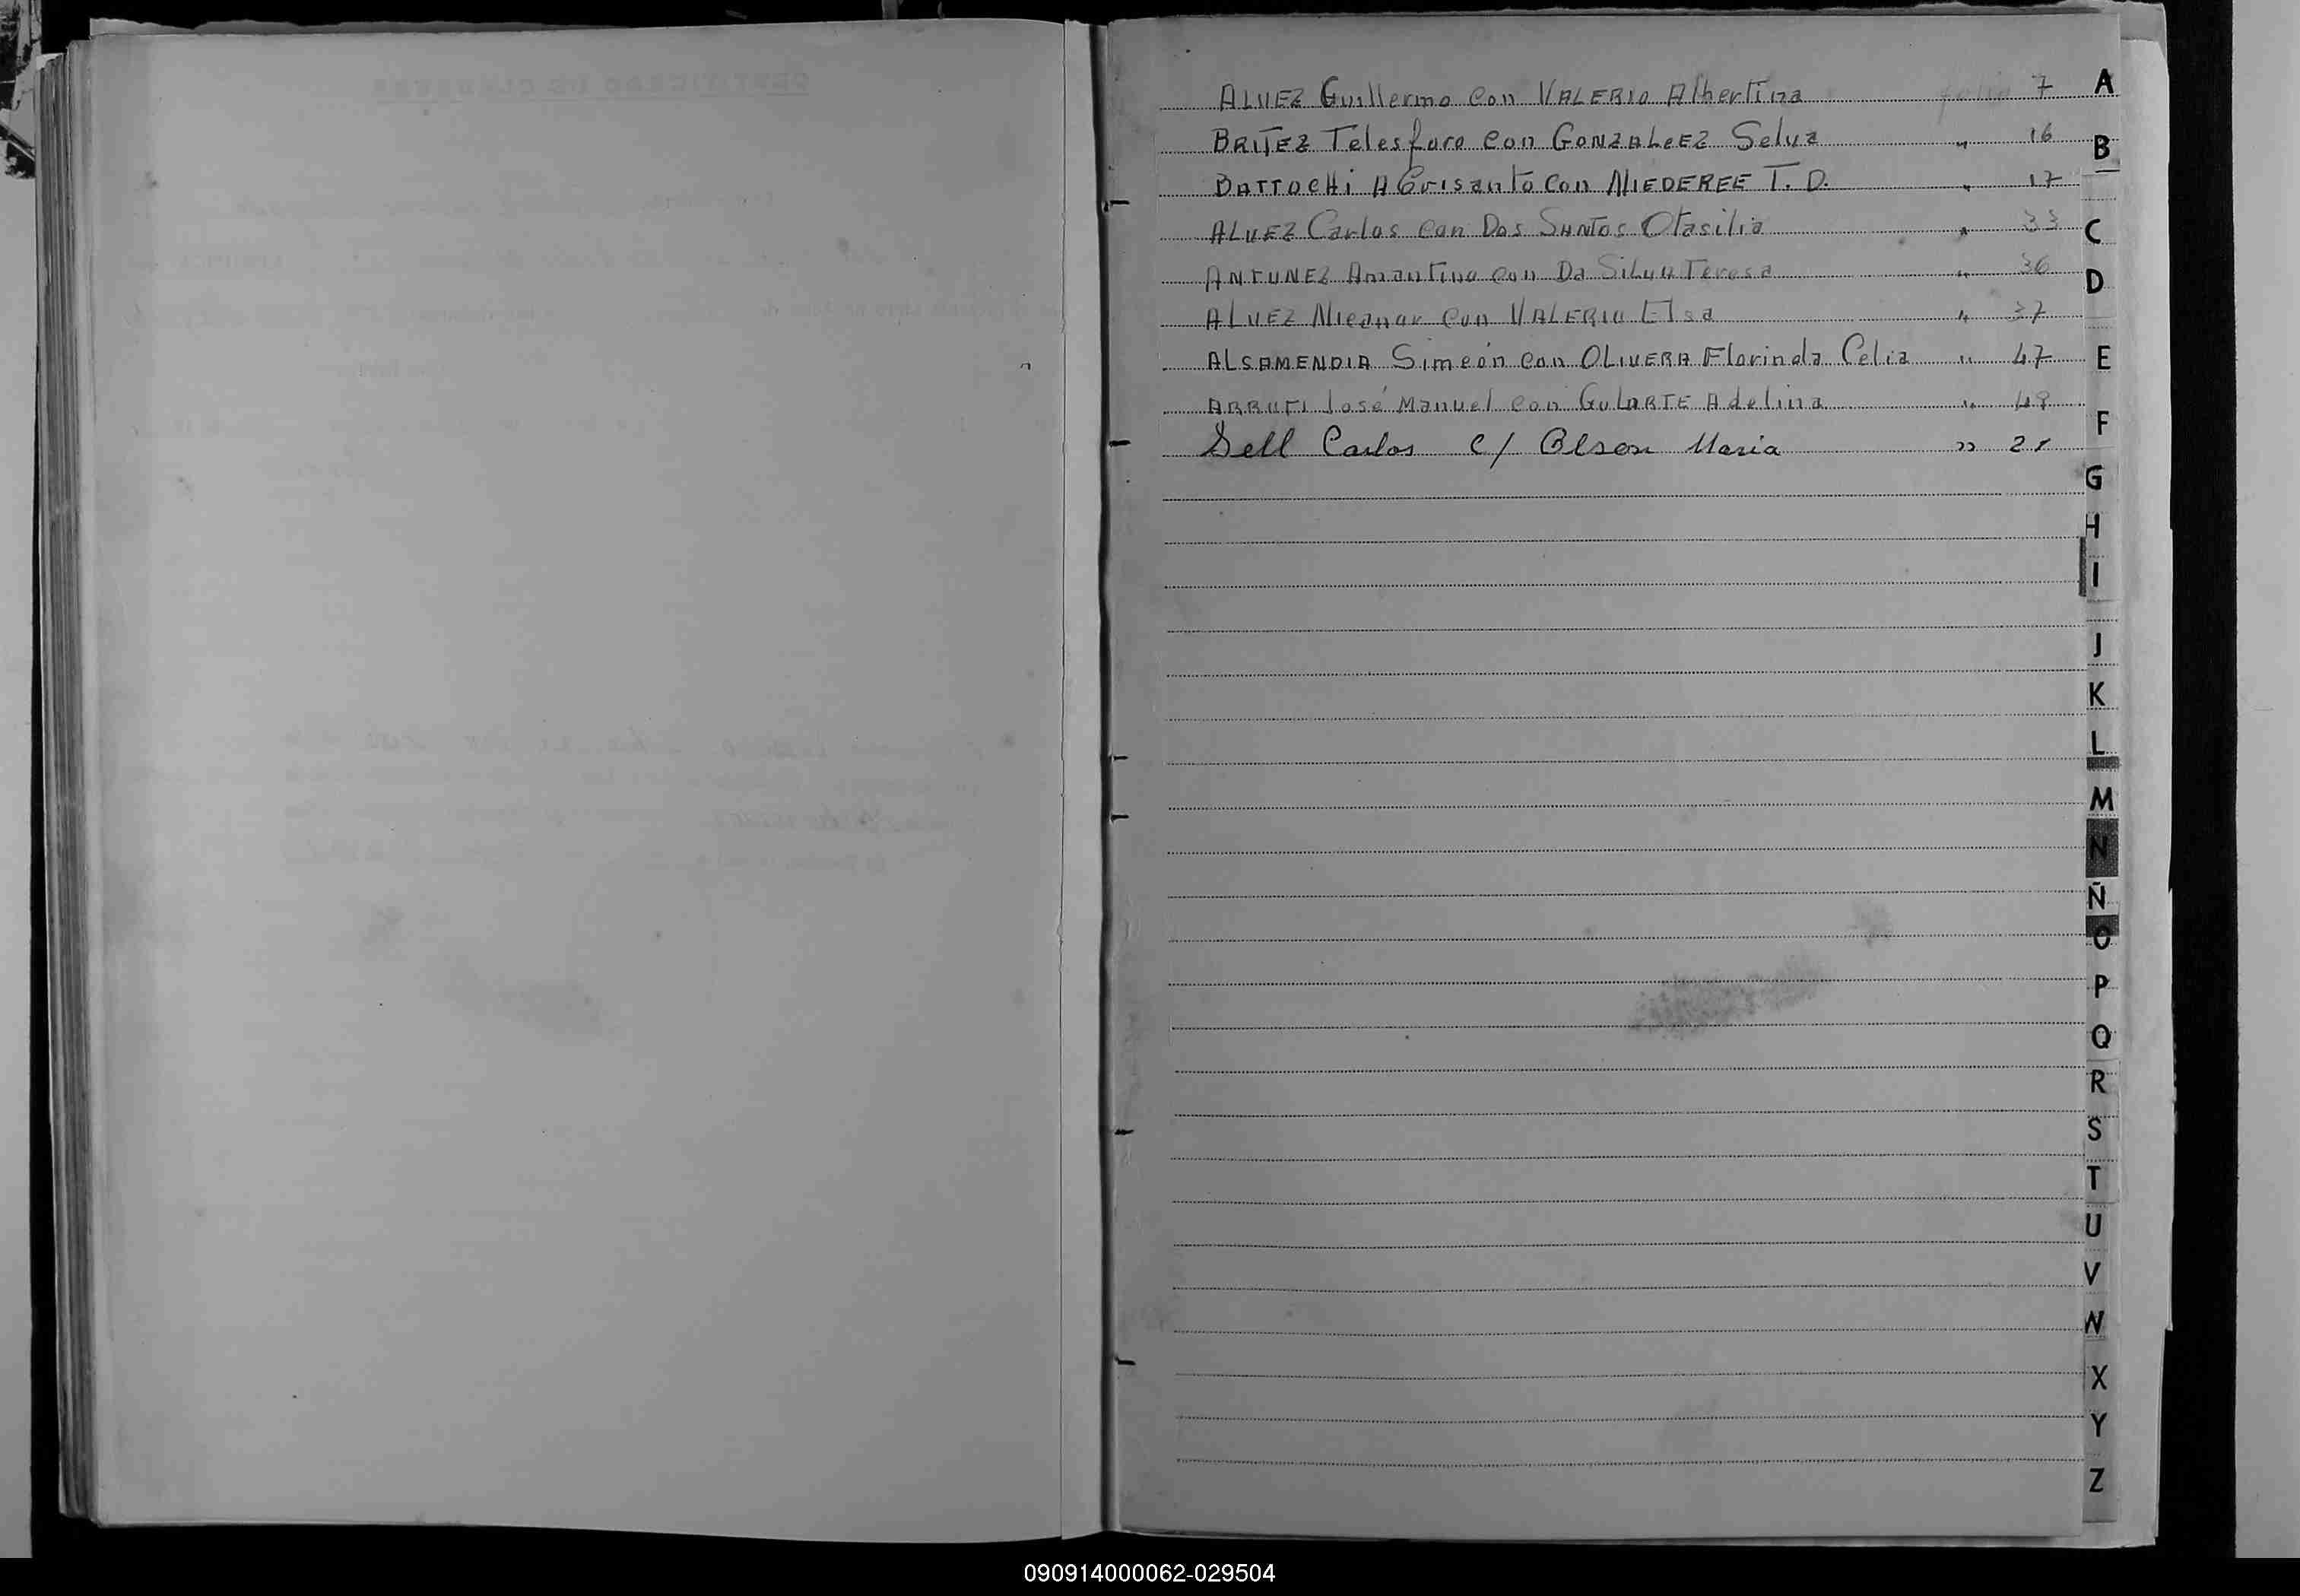 ALVEZ Guillermo con VALERIO Albertina folio 7 A
BRITEZ Telesforo con GONZALEZ Selva " 16 B
BATTOCHI A Crisanto con NIEDEREE T. D. " 17
ALVEZ Carlos con Dos SANTOS Otasilia " 33 C
ANTUNEZ Amantino con Da SILVA Teresa " 36 D
ALVEZ Nicanor con VALERIO Elsa " 37
ALSAMENDIA Simeón con OLIVERA Florinda Celia " 47 E
ARRUTI José Manuel con GULARTE Adelina " 49
F
Sell Carlos c/ Olson Maria " 21
G
H
I
J
K
L
M
N
Ñ
O
P
Q
R
S
T
U
V
W
X
Y
Z
090914000062-029504